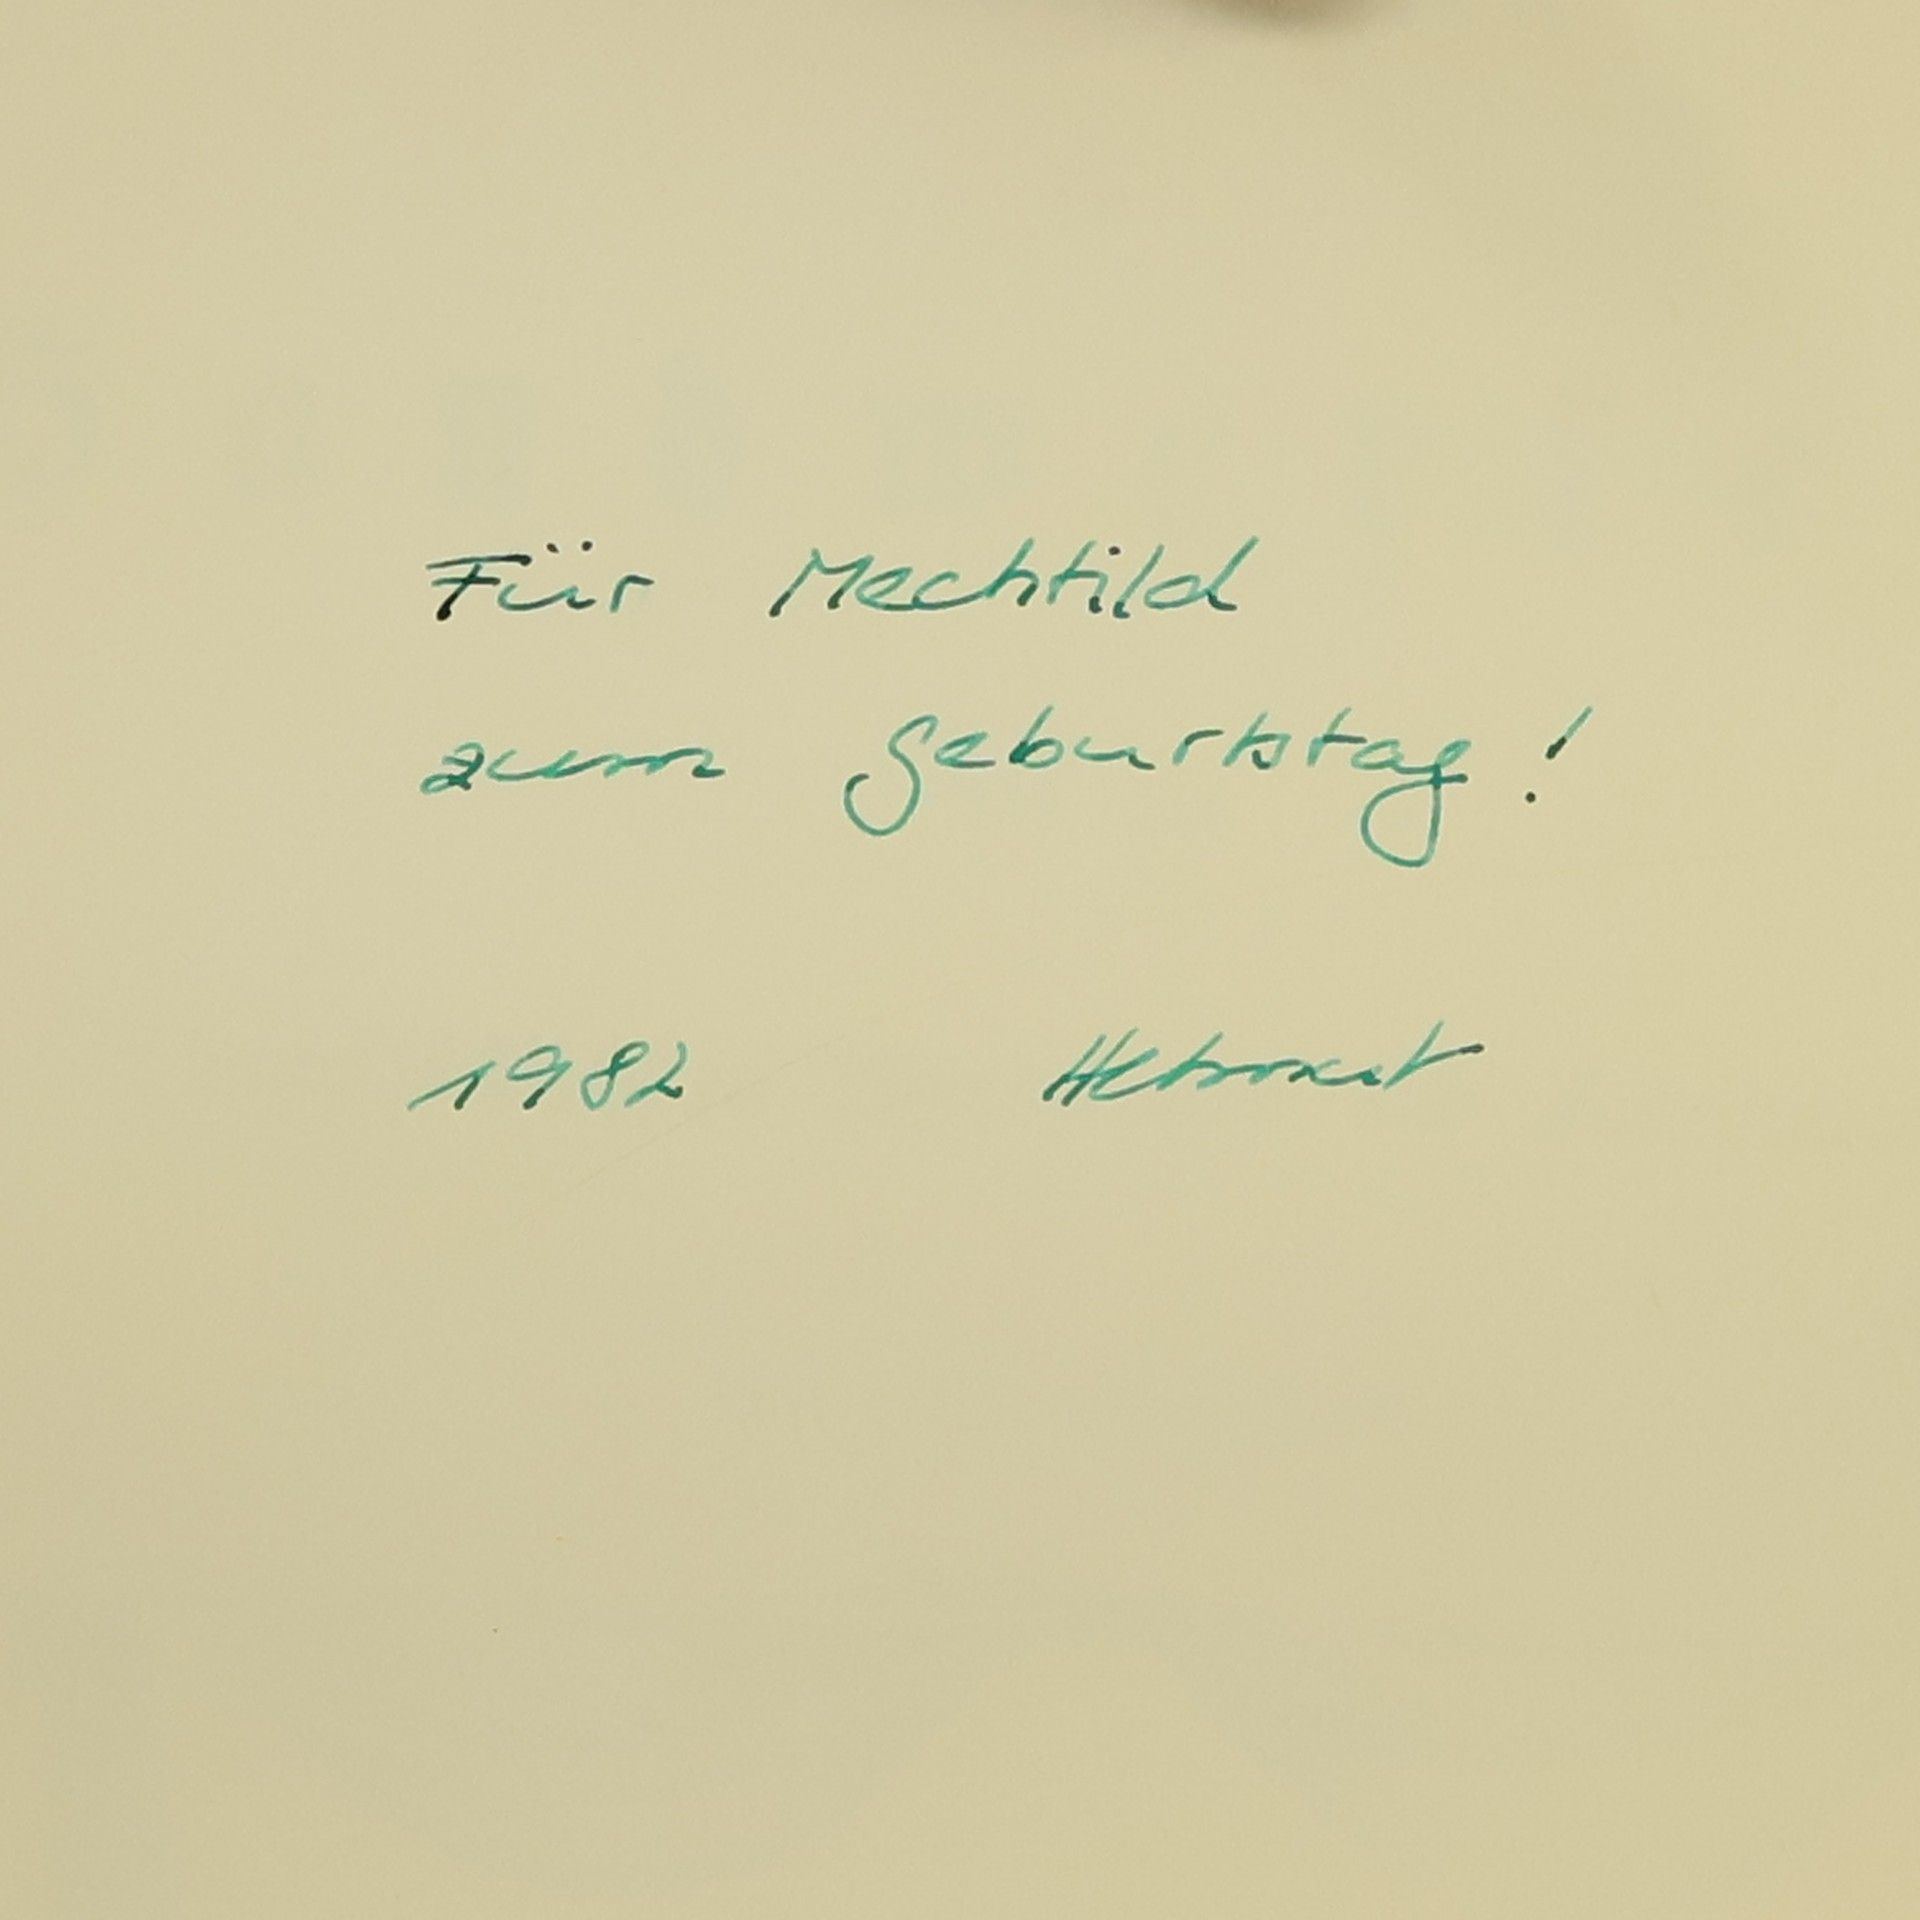 Für Mechtild
zum Geburtstag!
1982 Helmut